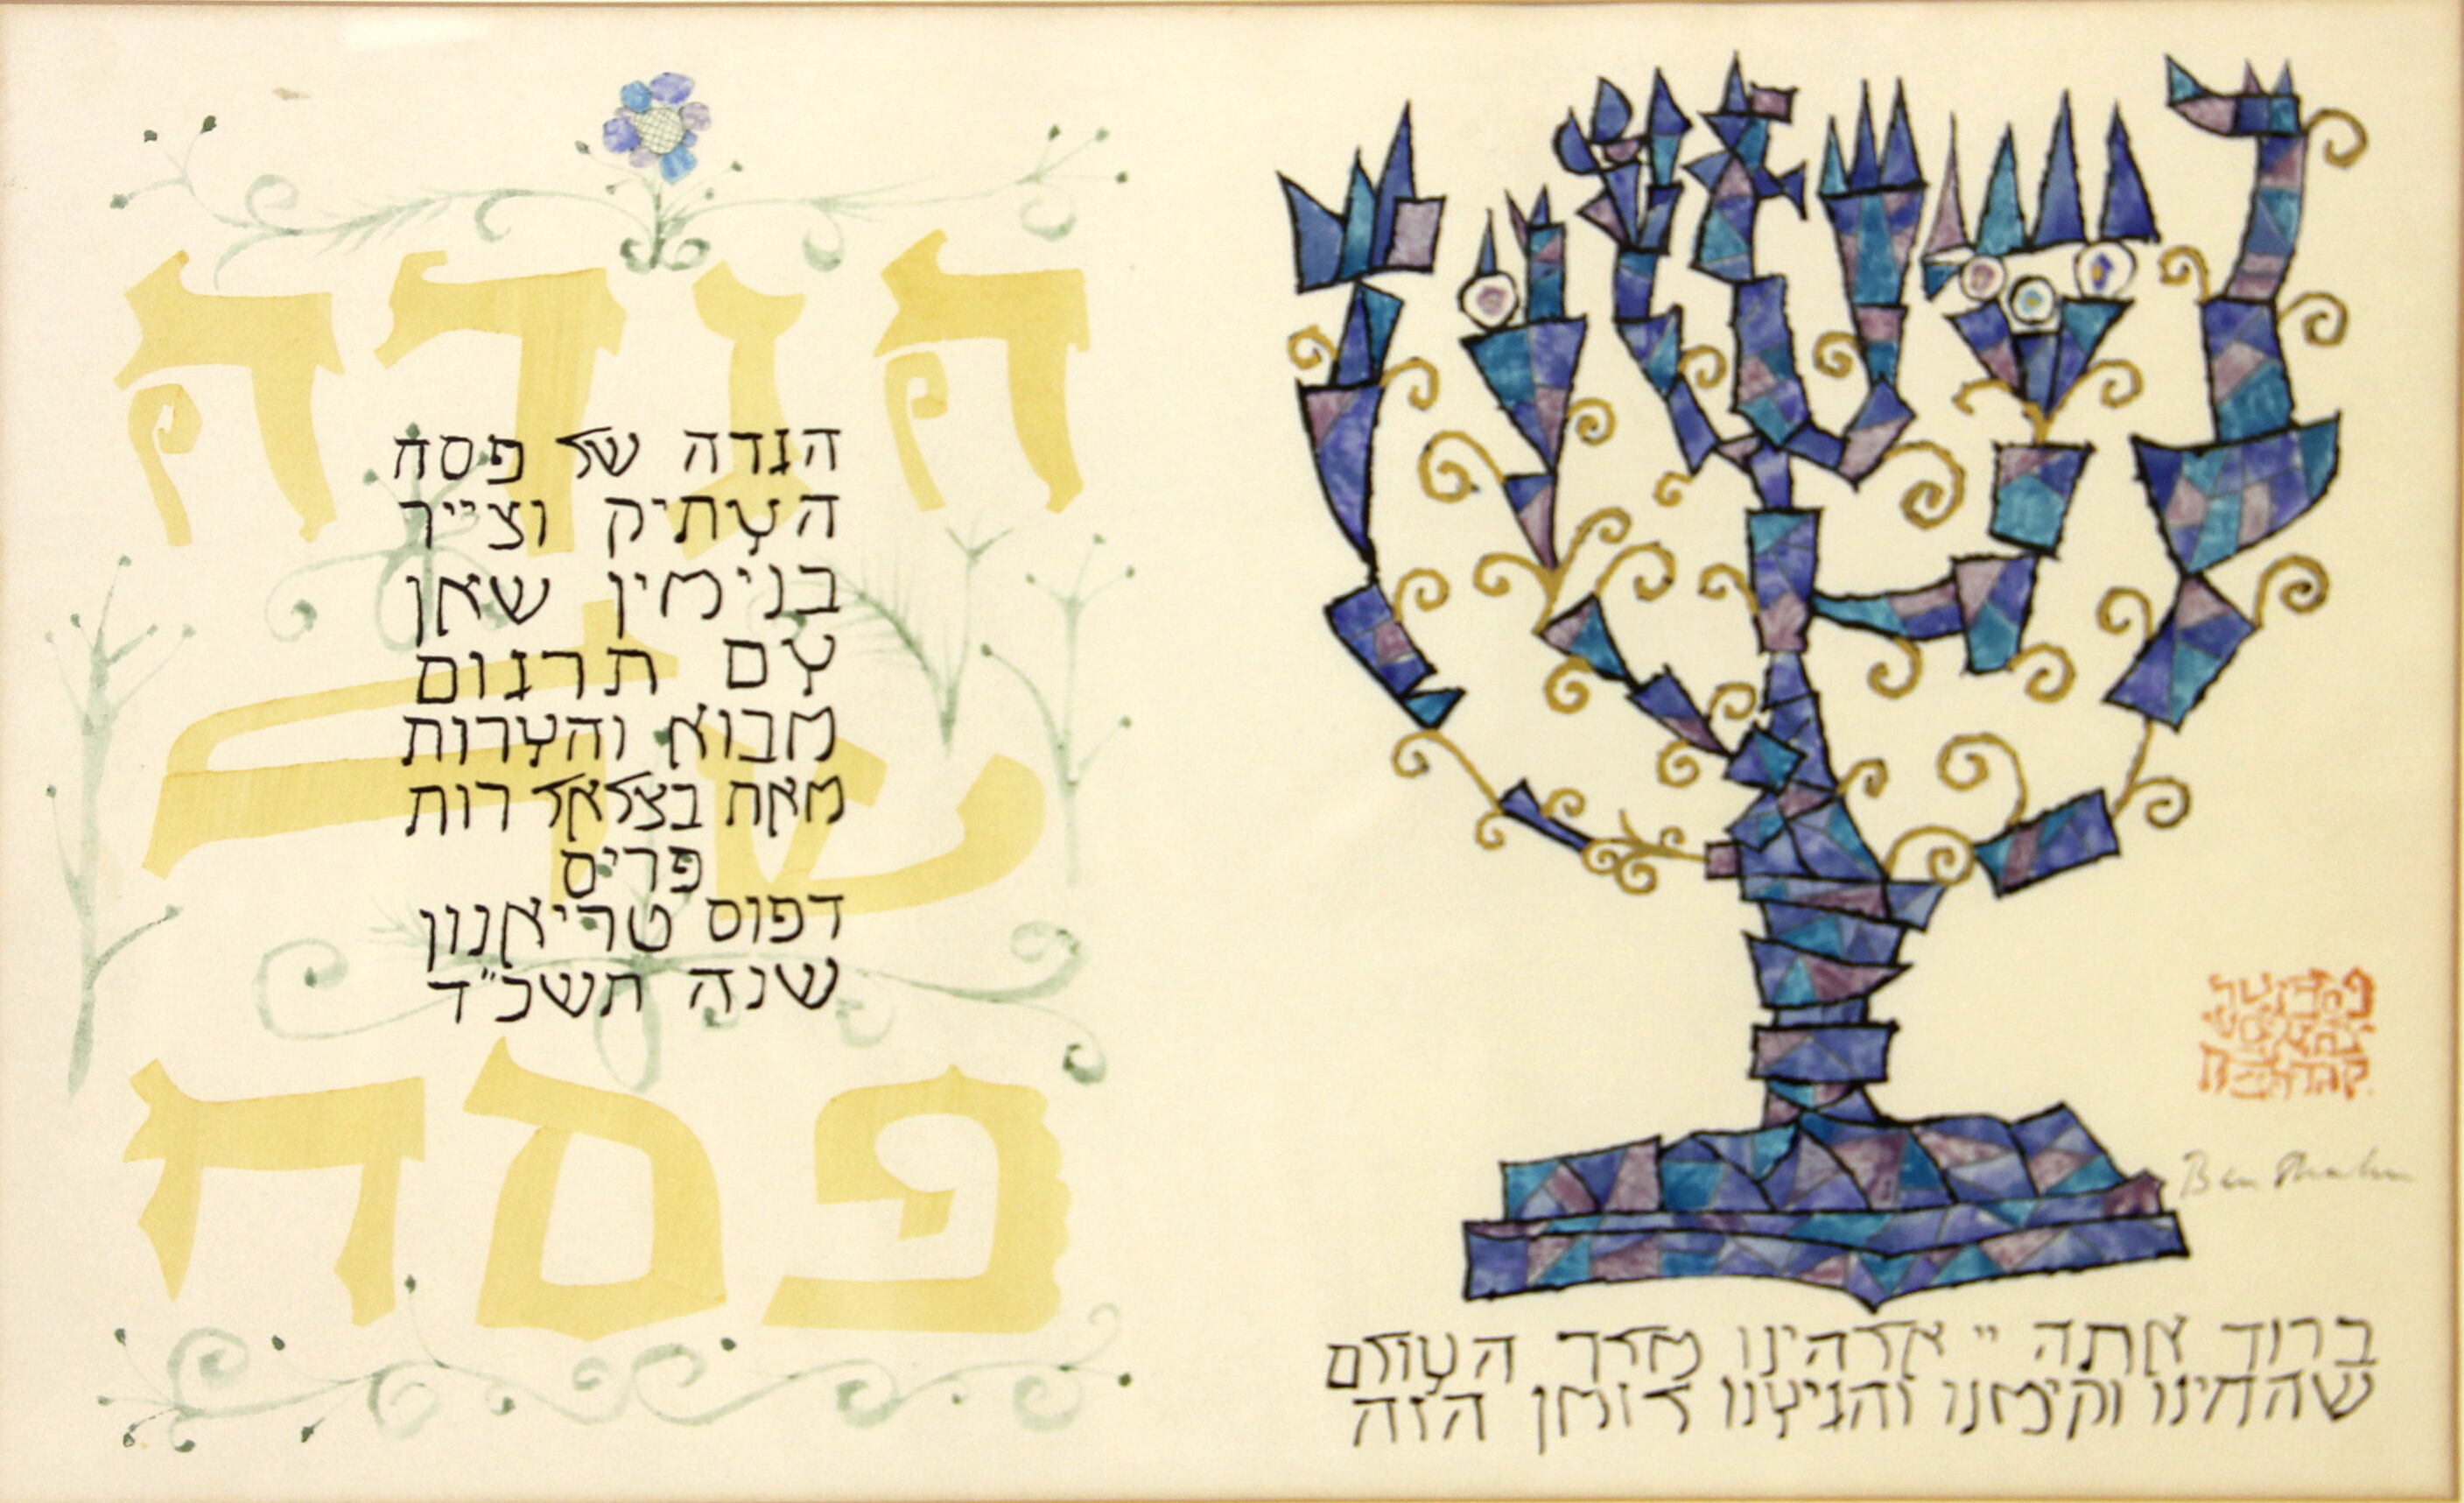 הגדה
של
פסח
הגדה של פסח
העתיק וצייר
בנימין שאן
עם תרגום
מבוא והערות
מאת בצלאל רות
פריס
דפוס טריאנון
שנה תשכ״ד
Ben Shahn
ברוך אתה יי אלהינו מלך העולם
שהחינו וקימנו והגיענו לזמן הזה